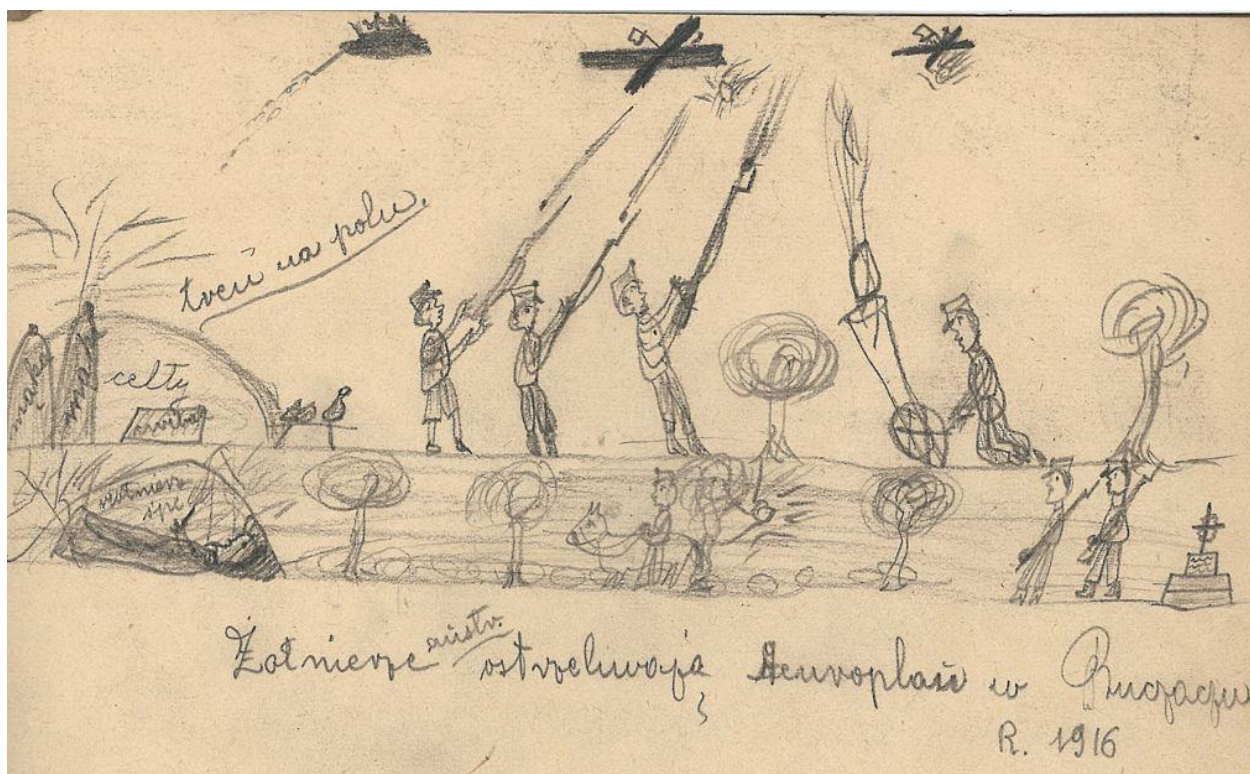 tren na polu.
mąka
celty
żołnierz
śpi
Żołnierze austr. ostrzeliwają w Buczaczu
R. 1916